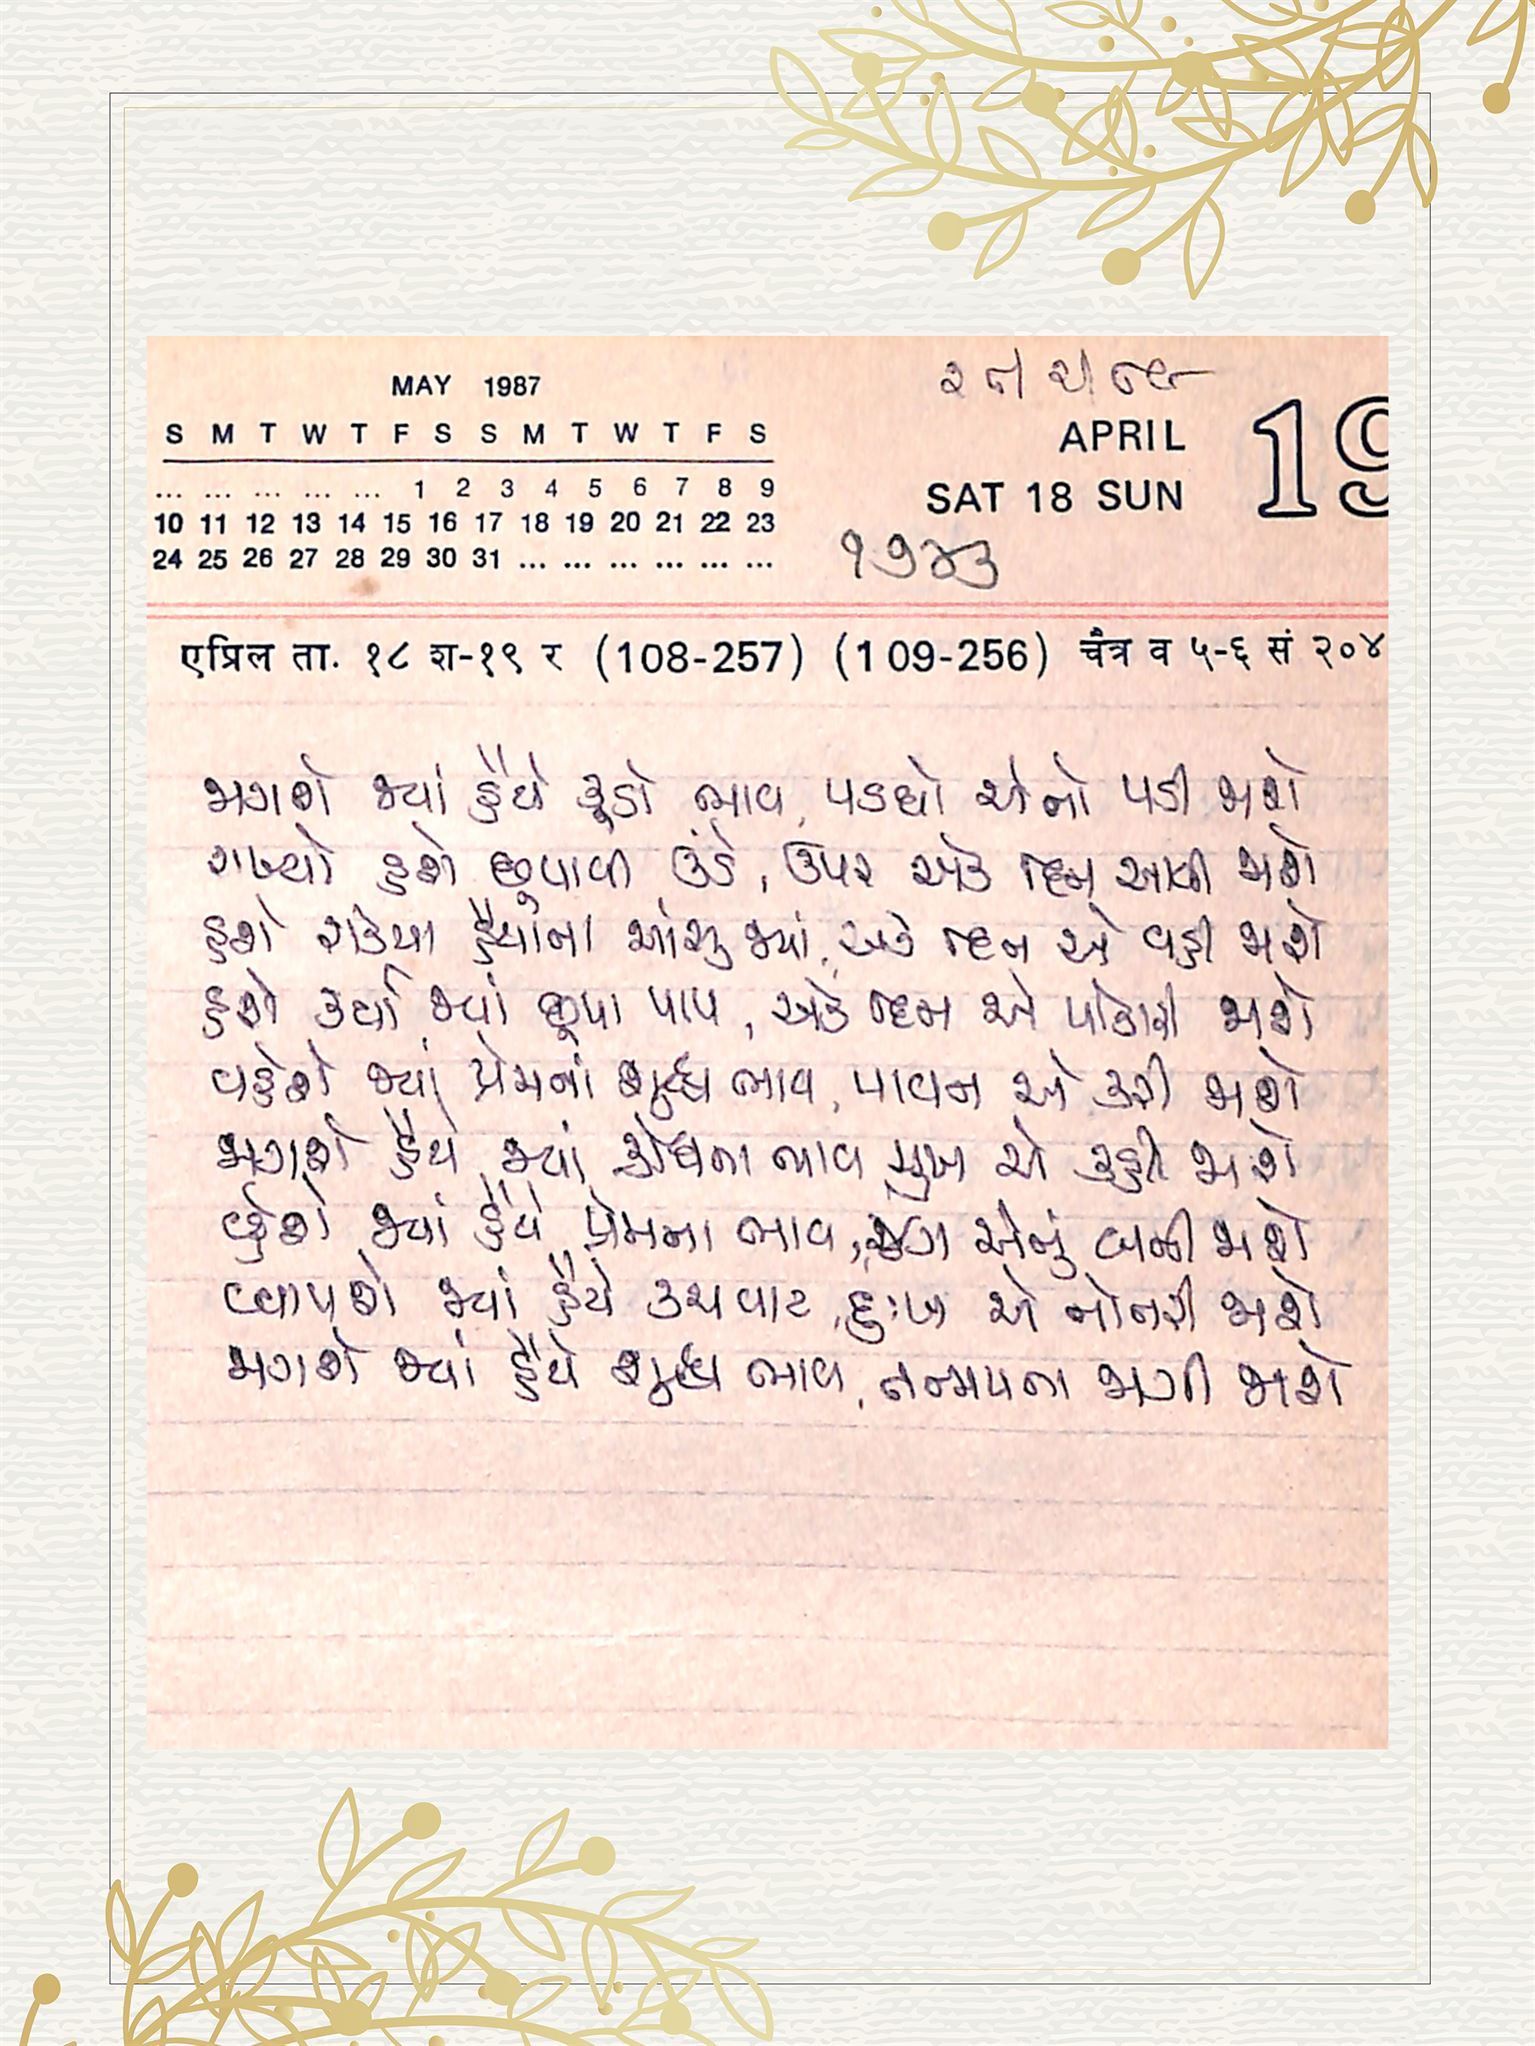 MAY 1987
S M T W T F S S M T W T F S
... ... ... ... ... 1 2 3 4 5 6 7 8 9
10 11 12 13 14 15 16 17 18 19 20 21 22 23
24 25 26 27 28 29 30 31 ... ... ... ... ... ...
APRIL
SAT 18 SUN
19
૧૭૪૩
एप्रिल ता. १८ श-१९ र (108-257) (109-256) चैत्र व ५-६ सं २०४
જાગશે જ્યાં હૈયે કૂડો ભાવ, પડઘો એનો પડી જાશે
રાખ્યો હશે છુપાવી ઉંડે, ઉપર એક દિન આવી જાશે
હશે રોકેયા હૈયાના આંસુ જ્યાં, એક દિન એ વહી જાશે
હશે કર્યા જ્યાં છૂપા પાપ, એક દિન એ પોકારી જાશે
વહેશે જ્યાં પ્રેમનાં શુદ્ધ ભાવ, પાવન એ કરી જાશે
જાગશે હૈયે જ્યાં ક્રોધના ભાવ મુખ એ કહી જાશે
હશે જ્યાં હૈયે પ્રેમના ભાવ, જગ એનું બની જાશે
વ્યાપશે જ્યાં હૈયે કચવાટ, દુઃખ એ નોતરી જાશે
જાગશે જ્યાં હૈયે શુદ્ધ ભાવ, તન્મયતા જાગી જાશે